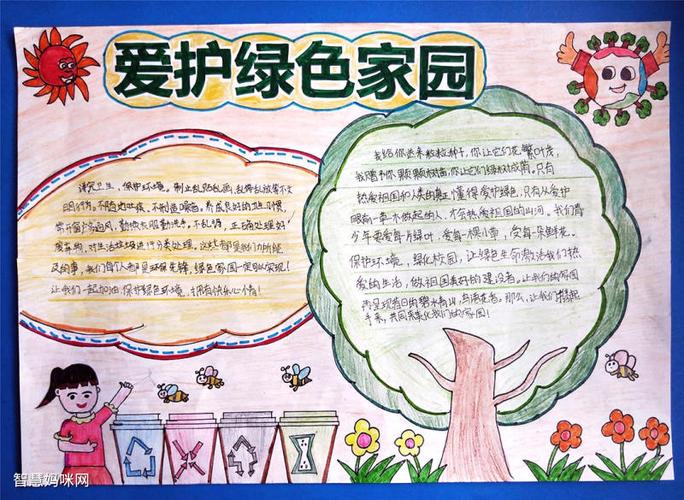 爱护绿色家园
讲究卫生，保护环境。制止乱贴乱画，乱停乱放等不文
明行为，不随地吐痰、不制造噪音。养成良好的卫生习惯，
常开窗户多通风，勤洗衣服勤洗手，不乱扔，正确处理好
废弃物，对生活垃圾进行分类处理，这些都是我们力所能
及的事，我们每个人都是环保先锋，绿色家园一定可以实现！
让我们一起加油，保护绿色环境，拥有快乐心情！
我给你送来粒粒种子，你让它们花繁叶茂，
我赠予你颗颗树苗，你让它们绿树成荫，只有
热爱祖国和人类的真正懂得爱护绿色，只有从爱护
眼前一草一木做起的人，才会热爱祖国的山河。我们青
少年要爱每片绿叶，爱每一棵小草，爱每一朵鲜花。
保护环境，绿化校园，让绿色生命激活我们热
爱的生活，做祖国美好的建设者。让我们的家园
再呈现昔日的碧水青山，鸟语花香。那么，让我们携起
手来，共同来绿化我们的家园！
智慧妈咪网